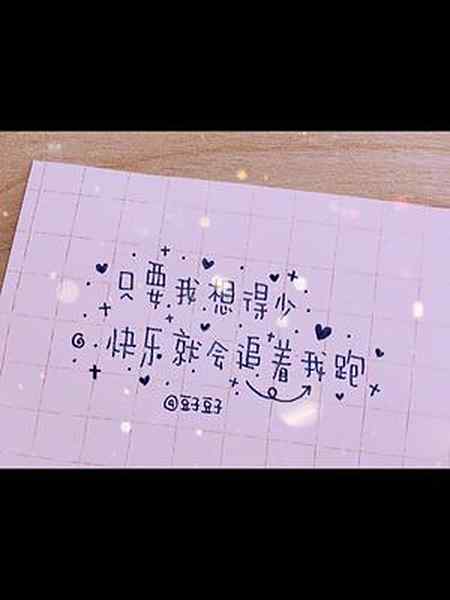 只要我想得少
快乐就会追着我跑
@豆子豆子